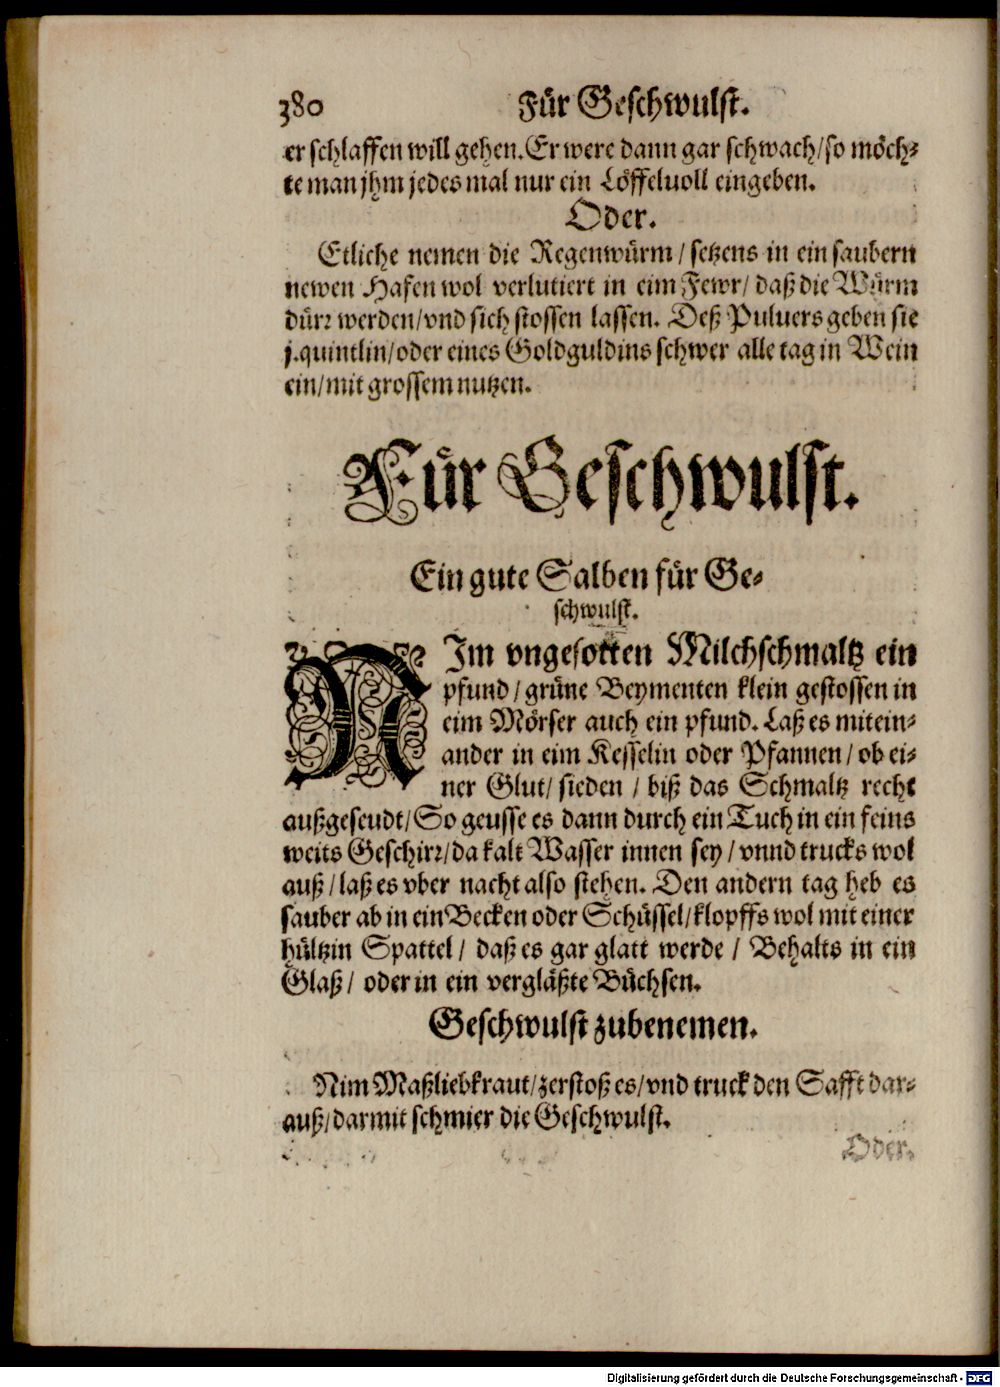 380 Für Geschwulst.
er schlaffen will gehen. Er were dann gar schwach/so möch-
te man jhm jedes mal nur ein Löffeluoll eingeben.
Oder.
Etliche nemen die Regenwürm / setzens in ein saubern
newen Hafen wol verlutiert in eim Fewr/ daß die Würm
dürr werden/vnd sich stossen lassen. Deß Puluers geben sie
j. quintlin/oder eines Goldguldins schwer alle tag in Wein
ein/mit grossem nutzen.
Für Geschwulst.
Ein gute Salben für Ge-
schwulst.
NIm vngesotten Milchschmaltz ein
pfund / grüne Beymenten klein gestossen in
eim Mörser auch ein pfund. Laß es mitein-
ander in eim Kesselin oder Pfannen / ob ei-
ner Glut/ sieden / biß das Schmaltz recht
außgeseudt/So geusse es dann durch ein Tuch in ein feins
weits Geschirr/da kalt Wasser innen sey / vnnd trucks wol
auß / laß es vber nacht also stehen. Den andern tag heb es
sauber ab in ein Becken oder Schüssel/klopffs wol mit einer
hültzin Spattel / daß es gar glatt werde / Behalts in ein
Glaß / oder in ein vergläßte Büchsen.
Geschwulst zubenemen.
Nim Maßliebkraut/zerstoß es/vnd truck den Safft dar-
auß/darmit schmier die Geschwulst.
Oder.
Digitalisierung gefördert durch die Deutsche Forschungsgemeinschaft - DFG